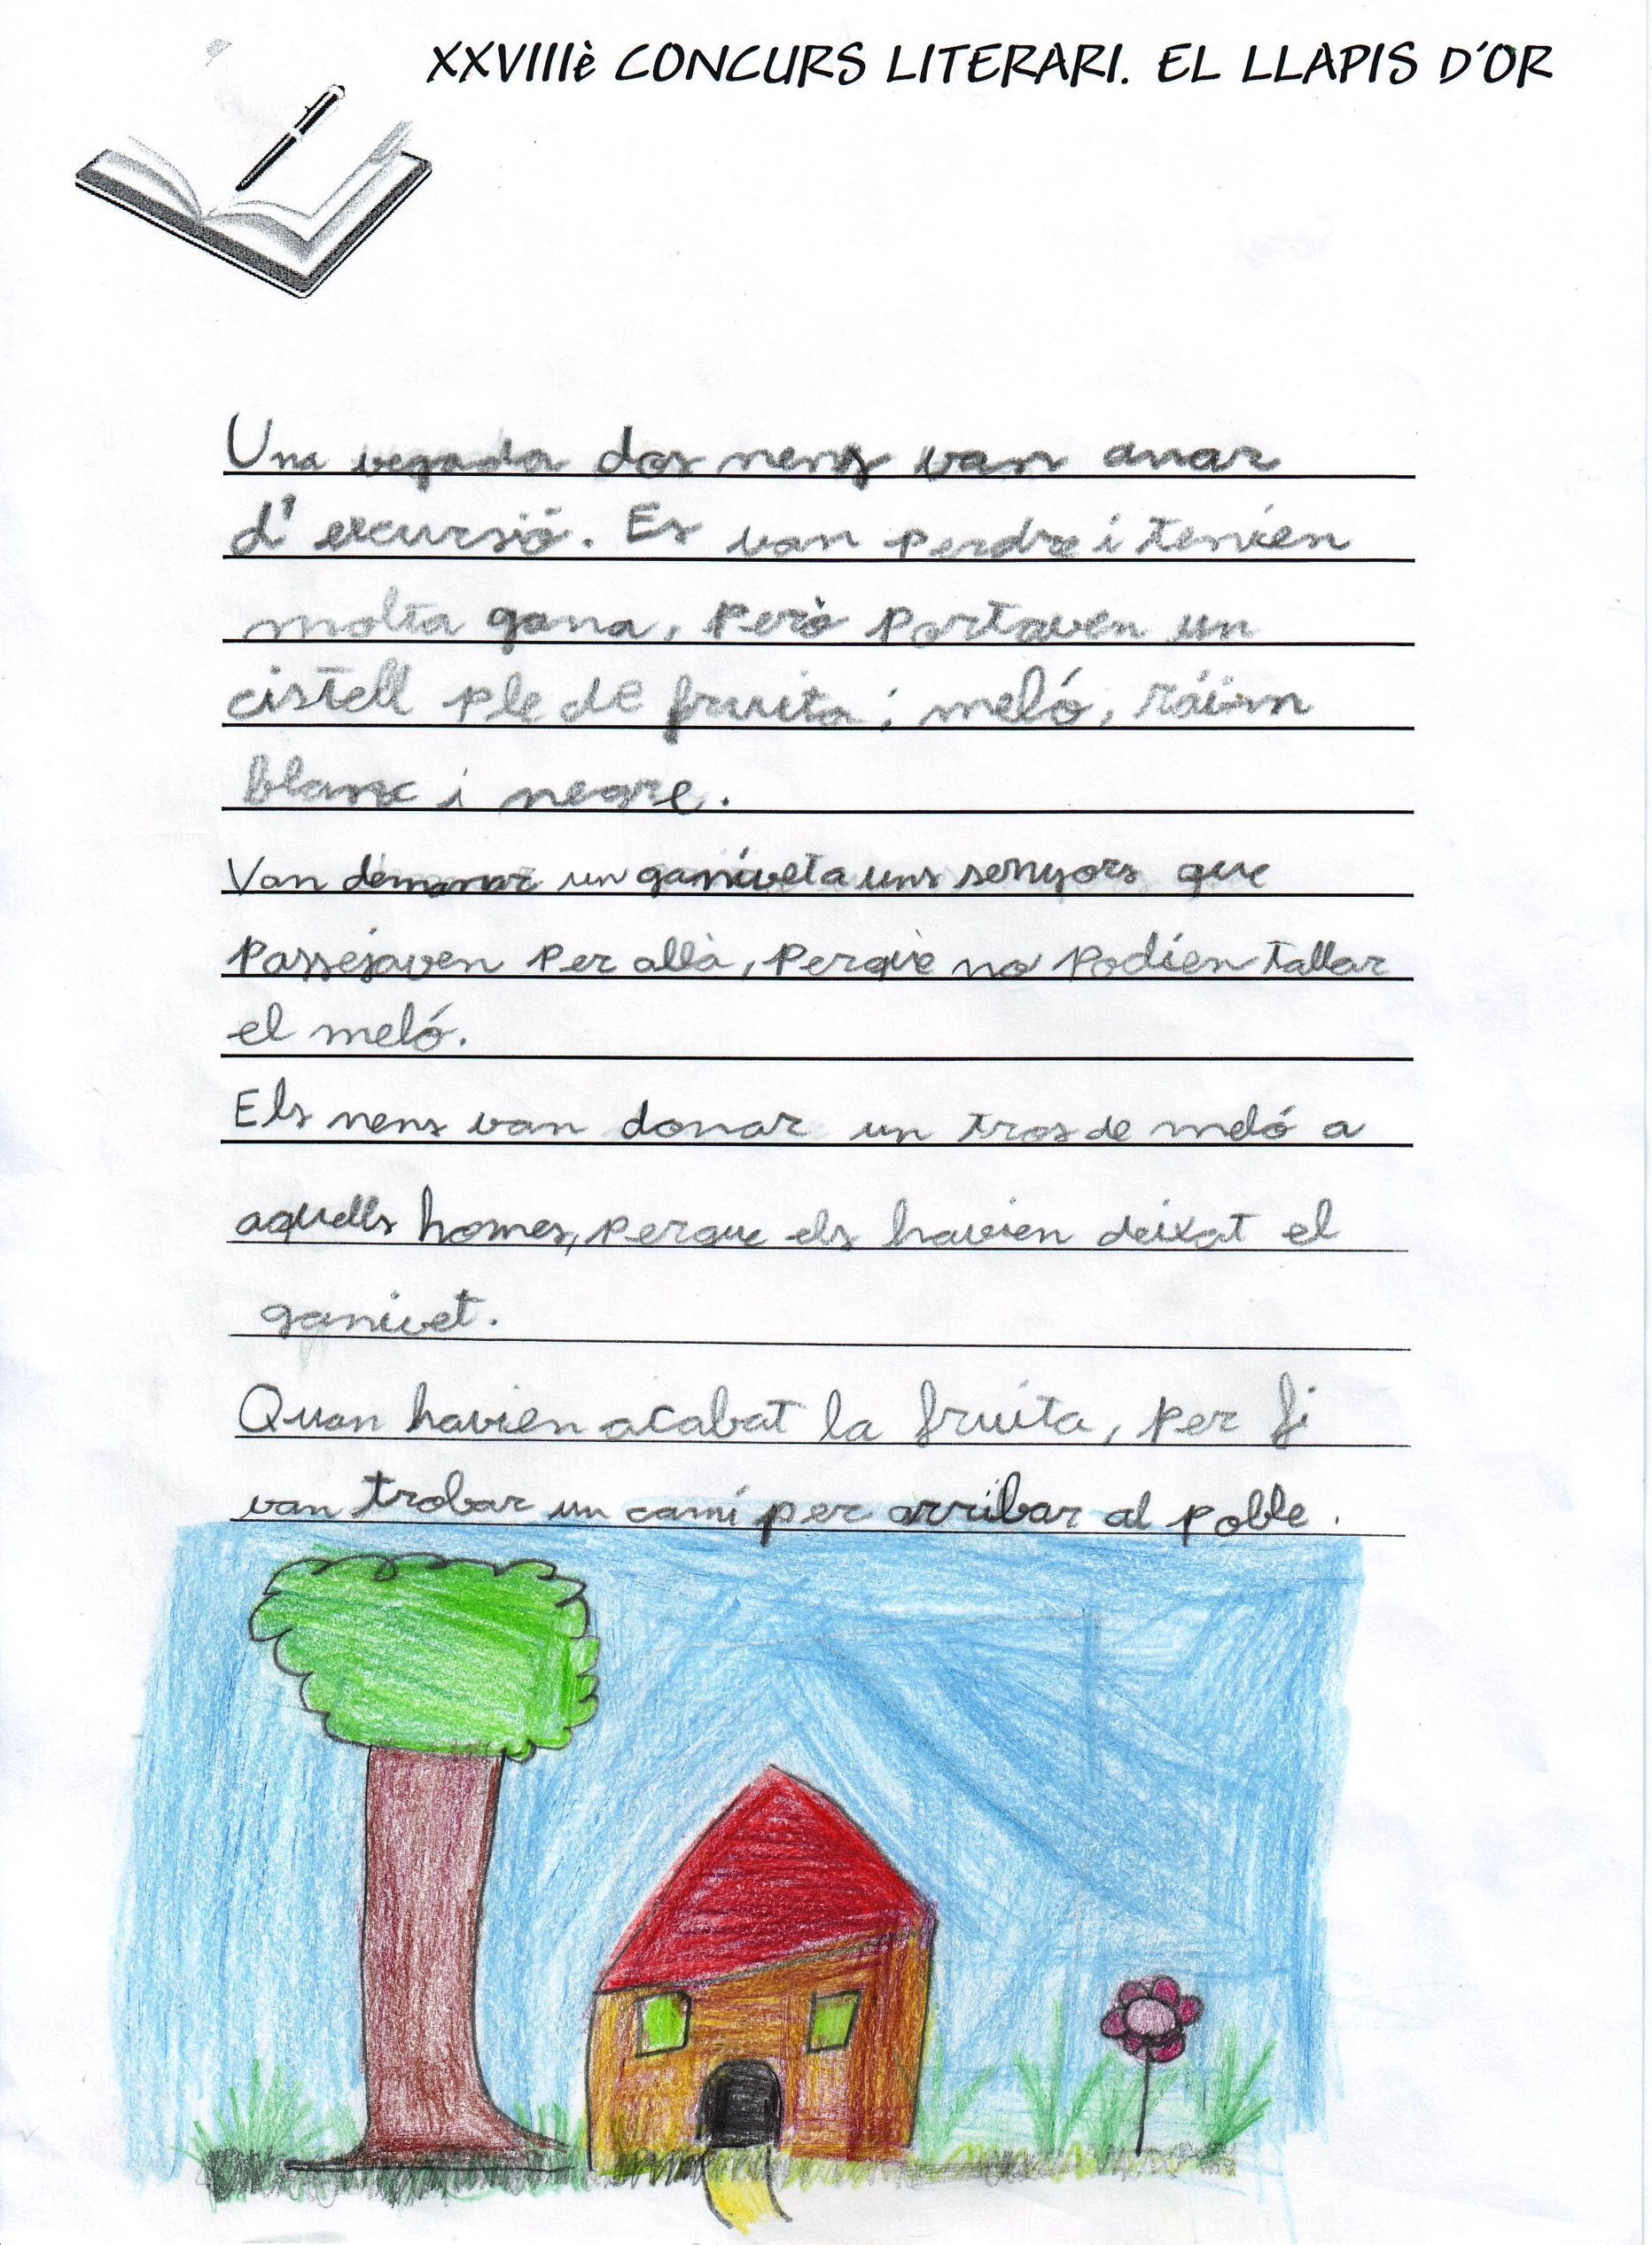 XXVIIIè CONCURS LITERARI. EL LLAPIS D'OR
Una vegada dos nens van anar
d'excursió. Es van perdre i tenien
molta gana, però portaven un
cistell ple de fruita; meló, ráïm
blanc i negre.
Van demanar un ganivet a uns senyors que
passejaven per allà, perquè no podien tallar
el meló.
Els nens van donar un tros de meló a
aquells homes, perque els havien deixat el
ganivet.
Quan havien acabat la fruita, per fi
van trobar un camí per arribar al poble.